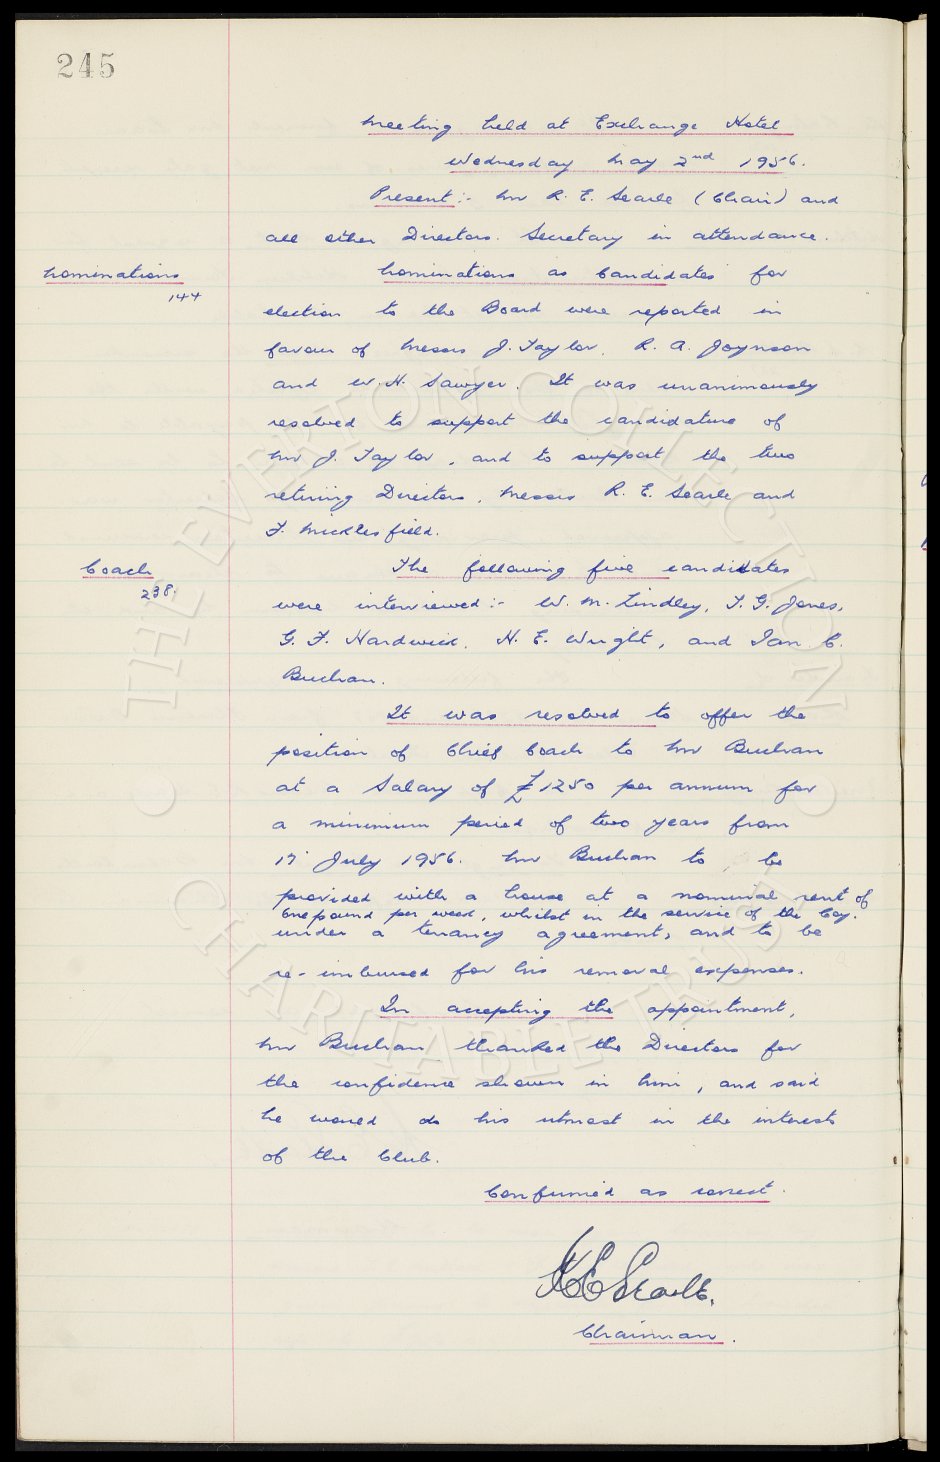 245
Meeting held at Exchange Hotel
Wednesday May 2nd 1956.
Present:- Mr R. E. Searle (Chair) and
all other Directors. Secretary in attendance.
Nominations
144
Nominations as Candidates for
election to the Board were reported in
favour of Messrs J. Taylor, R. A. Joynson
and W. H. Sawyer. It was unanimously
resolved to support the candidature of
Mr J. Taylor, and to support the two
retiring Directors, Messrs R. E. Searle and
F. Micklesfield.
Coach
238.
The following five candidates
were interviewed:- W. M. Lindley, T. G. Jones,
G. F. Hardwick, H. E. Wright, and Ian C.
Buchan.
It was resolved to offer the
position of Chief Coach to Mr Buchan
at a Salary of £1250 per annum for
a minimum period of two years from
17 July 1956. Mr Buchan to be
provided with a house at a nominal rent of
One pound per week, whilst in the service of the Coy.
under a tenancy agreement, and to be
re-imbursed for his removal expenses.
In accepting the appointment,
Mr Buchan thanked the Directors for
the confidence shown in him, and said
he would do his utmost in the interests
of the Club.
Confirmed as correct.
R E Searle.
Chairman.
THE EVERTON COLLECTION
CHARITABLE TRUST